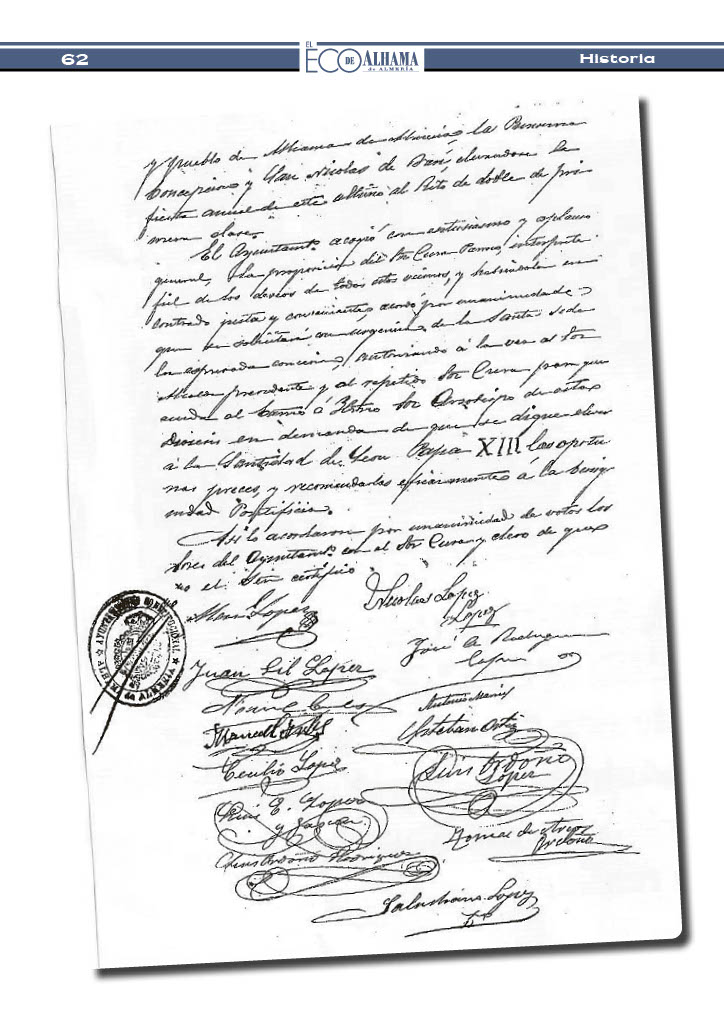 62
EL ECO DE ALHAMA
de ALMERÍA
Historia
y pueblo de Alhama de Almería la Purísima
Concepción y San Nicolás de Bari elevándose la
fiesta anual de este último al Rito de doble de pri
mera clase.
El Ayuntamto. acogió con entusiasmo y aplauso
general, la proposición del Sr Cura Párroco, interprete
fiel de los deseos de todos estos vecinos, y habiendola en
contrado justa y conveniente, acordó por unanimidad
que se solicitará con urgencia de la Santa sede
la espresada concesion, autorizando á la vez al Sor
Alcalde presidente y al repetido Sor Cura para que
acuda al Excmo é Iltmo Sor Arzobispo de esta
Diócesis en demanda de que se digne elevar
á la Santidad de Leon Papa XIII las oportu
nas preces, y recomendarlas eficazmente á la benig
nidad Pontificia.
Asi lo acordaron por unanimidad de votos los
Sores del Ayuntamto. con el Sor Cura y clero de que
yo el Srio certifico
Lopez
Nicolas Lopez
Lopez
José A. Rodriguez
Juan Gil Lopez
Antonio
Manuel
Esteban Ortiz
Cecilio Lopez
Luis Ordoño
Lopez
Luis E. Lopez
y
Tomas de
Luis Ordoño Rodriguez
Salustiano Lopez
AYUNTAMIENTO CONSTITUCIONAL